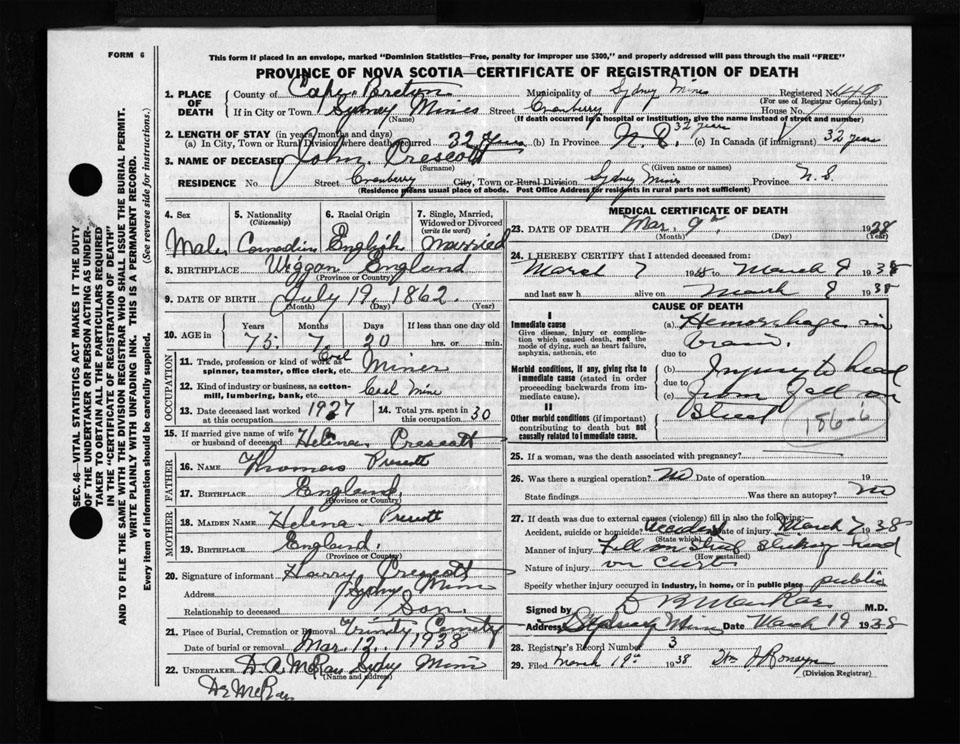 FORM 6
This form if placed in an envelope, marked "Dominion Statistics—Free, penalty for improper use $300," and properly addressed will pass through the mail "FREE"
PROVINCE OF NOVA SCOTIA—CERTIFICATE OF REGISTRATION OF DEATH
1. PLACE OF DEATH County of Cape Breton Municipality of Sydney Mines Registered No. 49
(For use of Registrar General only)
If in City or Town Sydney Mines Street Cranberry House No.
(Name) (If death occurred in a hospital or institution, give the name instead of street and number)
2. LENGTH OF STAY (in years, months and days)
(a) In City, Town or Rural Division where death occurred 32 years (b) In Province N.S. 32 years (c) In Canada (if immigrant) 32 years
3. NAME OF DECEASED John Prescott
(Surname) (Given name or names)
RESIDENCE No. Street Cranberry City, Town or Rural Division Sydney Mines Province N.S.
(Residence means usual place of abode. Post Office Address for residents in rural parts not sufficient)
4. Sex 5. Nationality (Citizenship) 6. Racial Origin 7. Single, Married, Widowed or Divorced (write the word)
Male Canadian English Married
8. BIRTHPLACE Wiggan England
(Province or Country)
9. DATE OF BIRTH July 19, 1862.
(Month) (Day) (Year)
10. AGE in Years Months Days If less than one day old
75 7 20 hrs. or min.
OCCUPATION
11. Trade, profession or kind of work as spinner, teamster, office clerk, etc. Coal Miner
12. Kind of industry or business, as cotton-mill, lumbering, bank, etc. Coal mine
13. Date deceased last worked at this occupation 1927 14. Total yrs. spent in this occupation 30
15. If married give name of wife or husband of deceased Helina Prescott
FATHER
16. NAME Thomas Prescott
17. BIRTHPLACE England.
(Province or Country)
MOTHER
18. MAIDEN NAME Helena Prescott
19. BIRTHPLACE England.
(Province or Country)
20. Signature of informant Harry Prescott
Address Sydney Mines
Relationship to deceased Son.
21. Place of Burial, Cremation or Removal Trinity Cemetery
Date of burial or removal Mar. 12, 1938
22. UNDERTAKER D. A. McRae Sydney Mines
(Name and address)
MEDICAL CERTIFICATE OF DEATH
23. DATE OF DEATH Mar. 9th 1938
(Month) (Day) (Year)
24. I HEREBY CERTIFY that I attended deceased from:
March 7 1938 to March 9 1938
and last saw h alive on March 8 1938
CAUSE OF DEATH
I
Immediate cause
Give disease, injury or complication which caused death, not the mode of dying, such as heart failure, asphyxia, asthenia, etc
(a) Hemorrhage in brain.
due to
Morbid conditions, if any, giving rise to immediate cause (stated in order proceeding backwards from immediate cause).
(b) Injury to head
due to
(c) from fall on street
II
Other morbid conditions (if important) contributing to death but not causally related to immediate cause.
186-6
25. If a woman, was the death associated with pregnancy?
26. Was there a surgical operation? No Date of operation 19
State findings Was there an autopsy? No
27. If death was due to external causes (violence) fill in also the following:—
Accident, suicide or homicide? Accident Date of injury March 7 1938
(State which)
Manner of injury Fell on street striking head
(How sustained)
Nature of injury on curb
Specify whether injury occurred in industry, in home, or in public place public
Signed by M.D.
Address Sydney Mines Date March 19 1938
28. Registrar's Record Number 3
29. Filed March 19th 1938
(Division Registrar)
SEC. 46—VITAL STATISTICS ACT MAKES IT THE DUTY OF THE UNDERTAKER OR PERSON ACTING AS UNDERTAKER TO OBTAIN ALL THE PARTICULARS REQUIRED IN THE "CERTIFICATE OF REGISTRATION OF DEATH"
AND TO FILE THE SAME WITH THE DIVISION REGISTRAR WHO SHALL ISSUE THE BURIAL PERMIT.
WRITE PLAINLY WITH UNFADING INK. THIS IS A PERMANENT RECORD.
Every item of information should be carefully supplied. (See reverse side for instructions.)